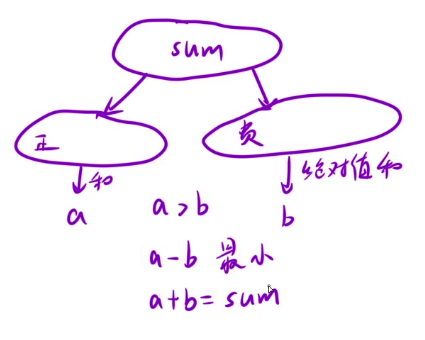 sum
正 负
和 绝对值和
a a>b b
a-b 最小
a+b= sum